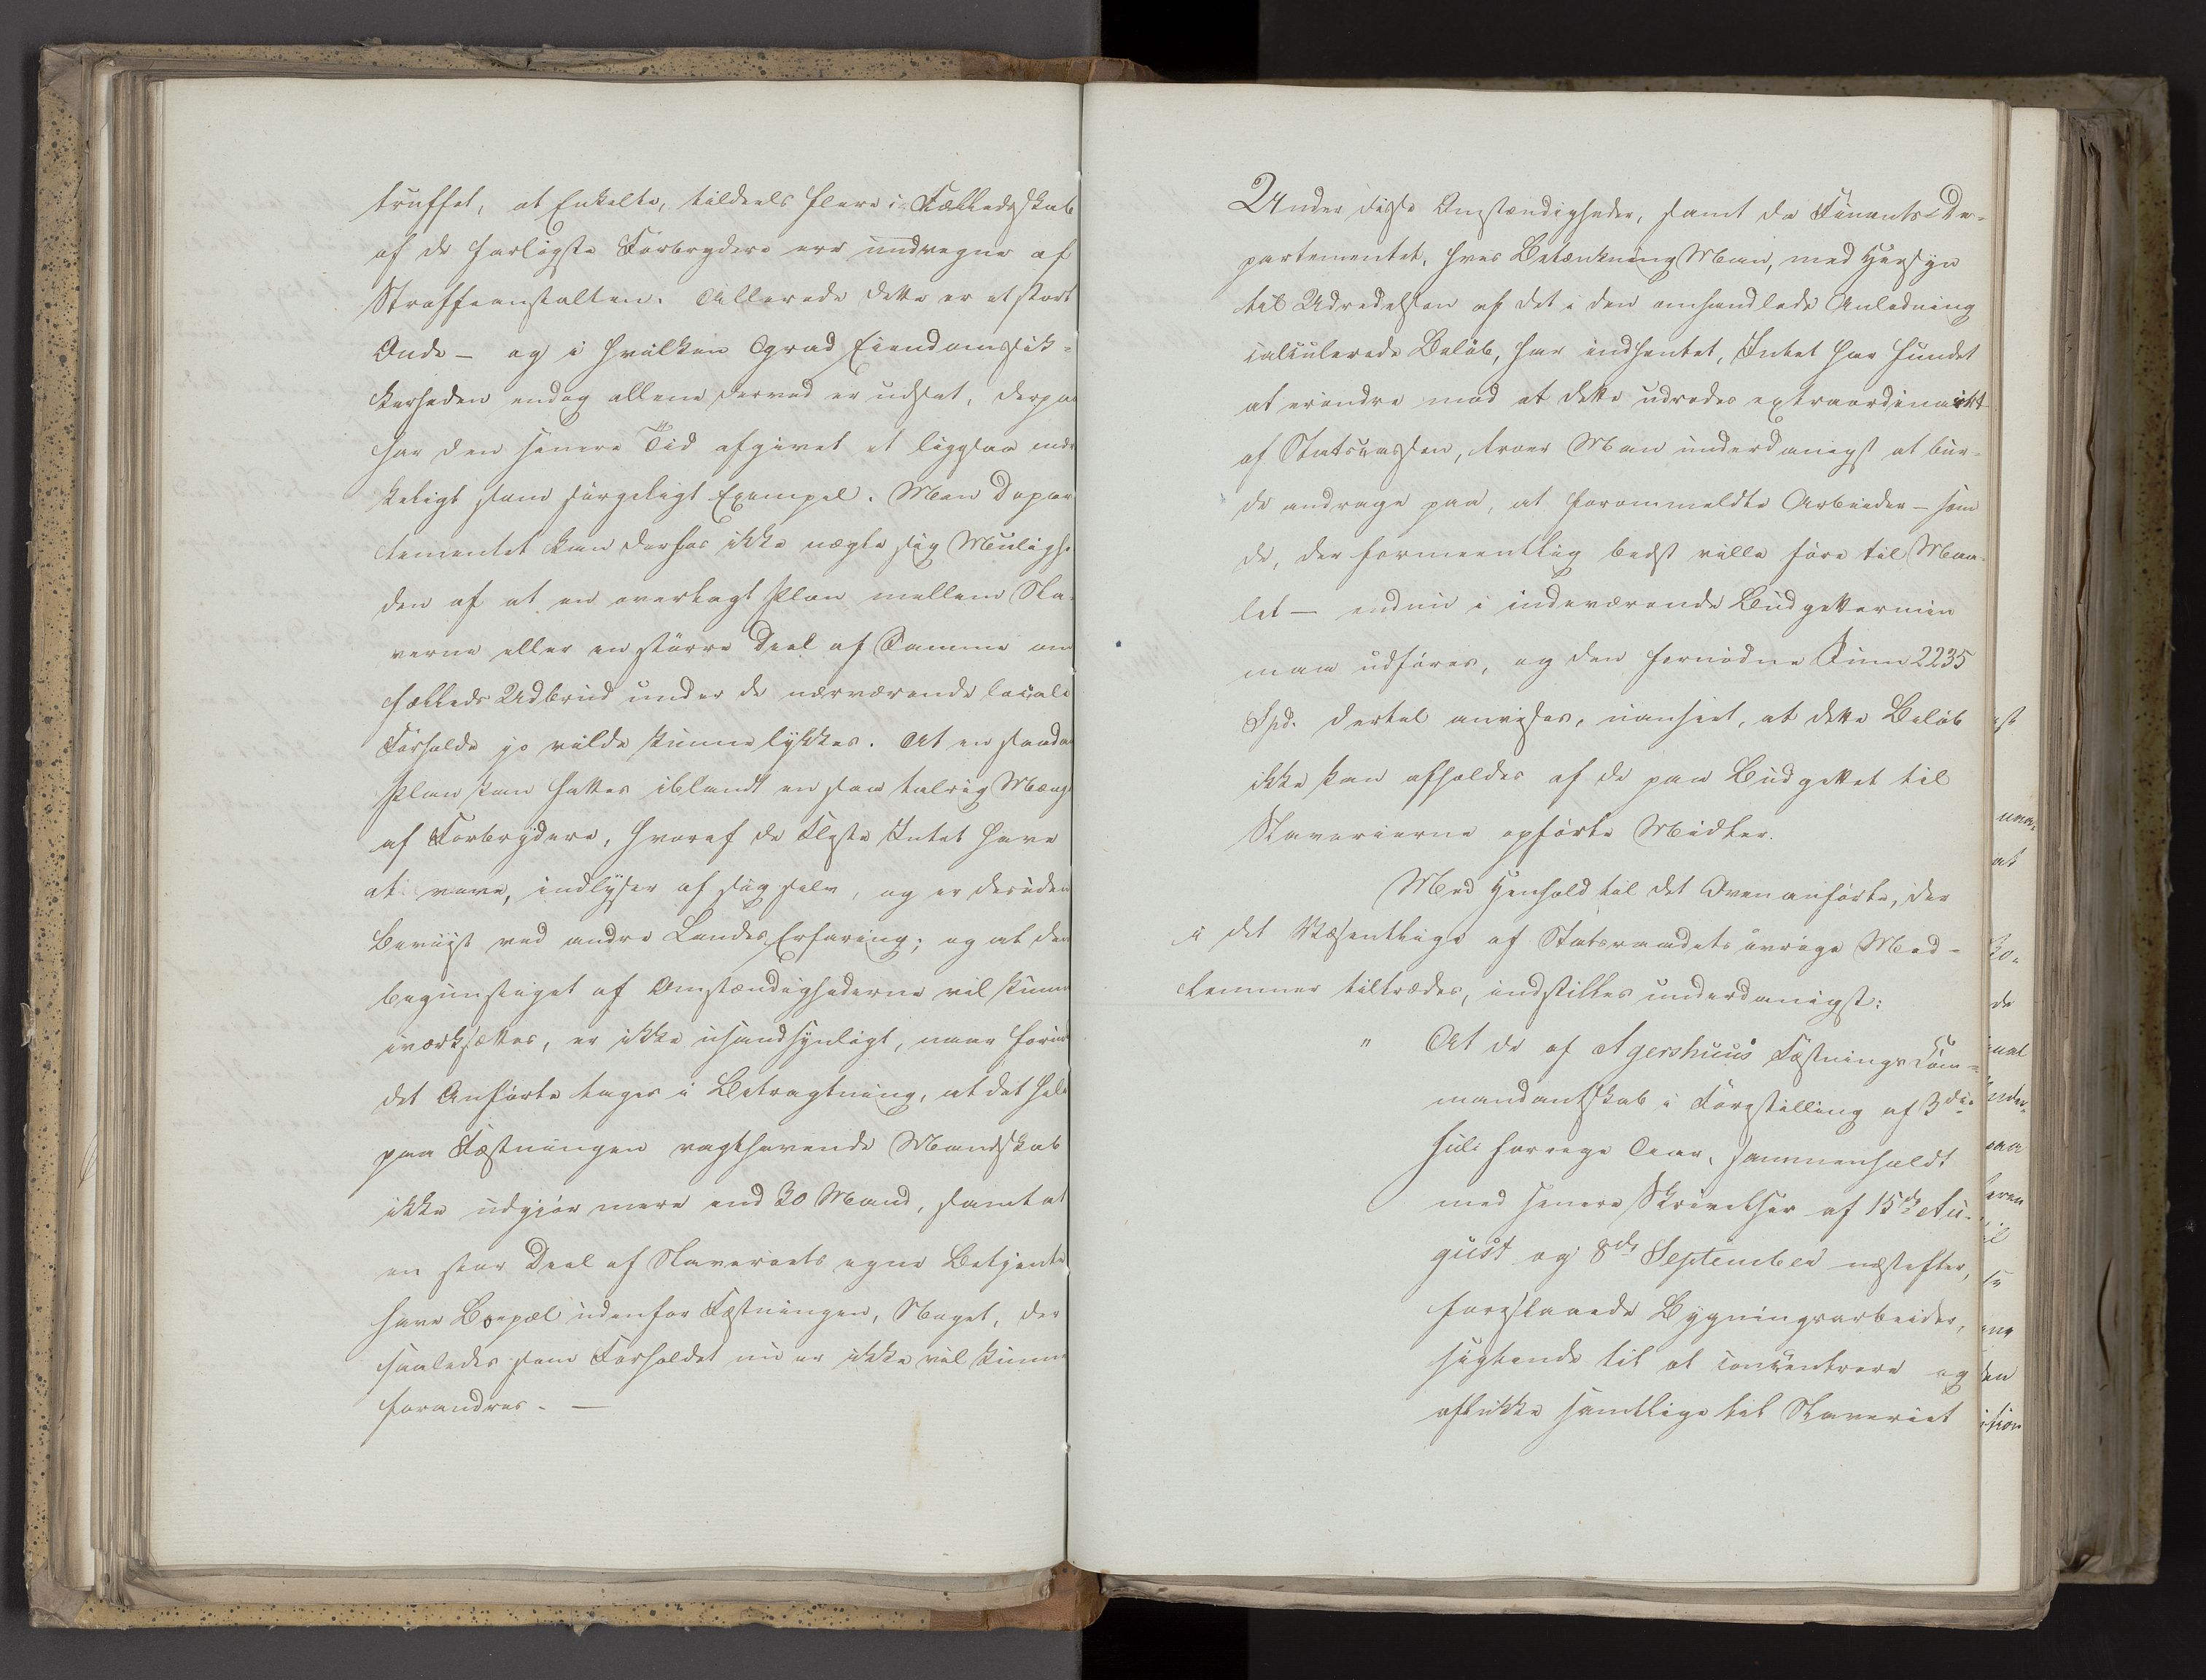 truffet, at Enkelte, tildeels flere i Fælledsskab
af de farligste Forbrydere ere undvegne af
Straffeanstalten. Allerede dette er et stort
Onde – og i hvilken Grad Eiendomssik-
kerheden endog allene derved er udsat, derpaa
har den senere Tid afgivet et ligesaa mær
keligt som sørgeligt Exempel. Men Depar
tementet kan derhos ikke nægte sig Mulighe
den af at en overlagt Plan mellem Sla-
verne eller en større Deel af Samme om
fælleds Udbrud under de nærværende locale
Forholde jo vilde kunne lykkes. At en saadan
Plan kan fattes iblandt en saa talrig Mængde
af Forbrydere, hvoraf de Fleste Intet have
at vove, indlyser af sig selv, og er desuden
beviist ved andre Landes Erfaring; og at den
begunstiget af Omstændighederne vil kunne
iværksættes, er ikke usandsynligt, naar foruden
det Anførte tages i Betragtning, at det hele
paa Fæstningen vagthavende Mandskab
ikke udgjør mere end 30 Mand, samt at
en stor Deel af Slaveriets egne Betjente
have Bopæl udenfor Fæstningen, Noget, der
saaledes som Forholdet nu er ikke vil kunne
forandres. –
Under disse Omstændigheder, samt da Finants-De-
partementet, hvis Betænkning Man, med Hensyn
til Udredelsen af det i den omhandlede Anledning
calculerede Beløb, har indhentet, Intet har fundet
at erindre mod at dette udredes extraordinairt
af Statscassen, troer Man underdanigst at bur-
de andrage paa, at forommeldte Arbeider – som
de, der formeentlig bedst ville føre til Maa-
let – endnu i indeværende Budgettermin
maa udføres, og den fornødne Sum 2235
Spd. dertil anvises, uanseet, at dette Beløb
ikke kan afholdes af de paa Budgettet til
Slaverierne opførte Midler.
Med Henhold til det Ovenanførte, der
i det Væsentlige af Statsraadets øvrige Med-
lemmer tiltrædes, indstilles underdanigst:
" At de af Agershuus Fæstnings Com-
mandantskab i Forestilling af 3die
Juli forrige Aar, sammenholdt
med senere Skrivelser af 15de Au-
gust og 8de September næstefter,
foreslaaede Bygningsarbeider,
sigtende til at concentrere og
aflukke samtlige til Slaveriet